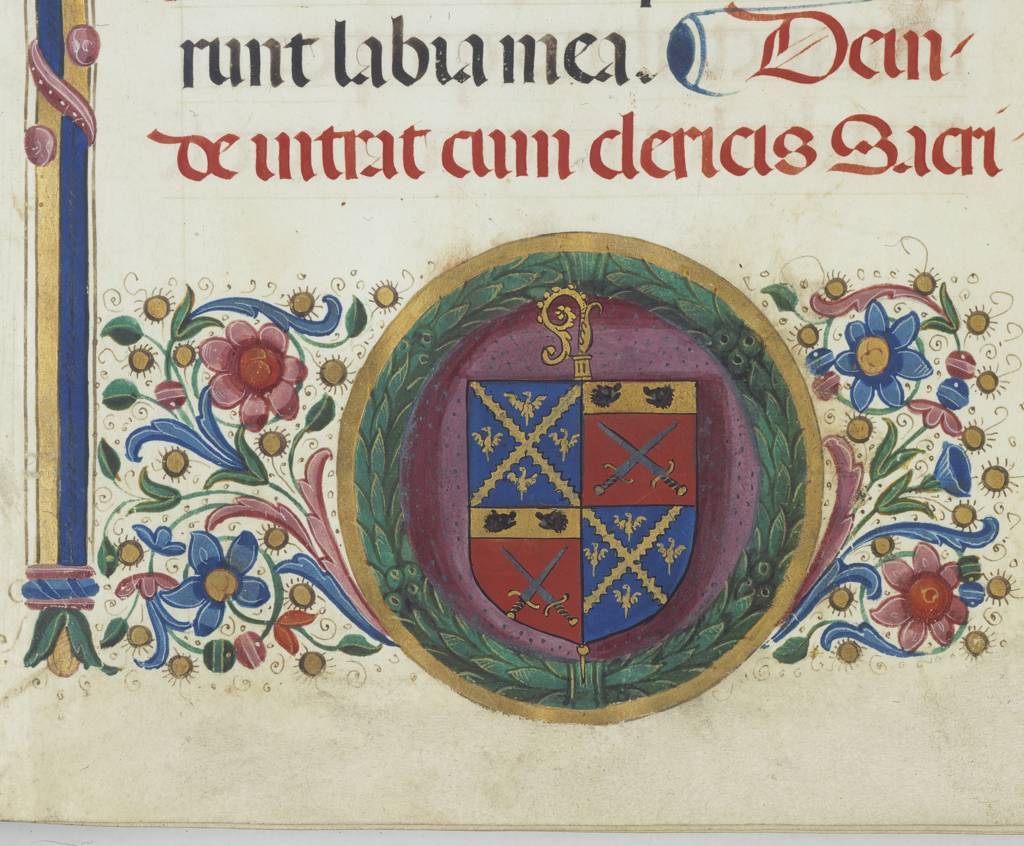 runt labia mea. Dein-
de intrat cum clericis Sacri